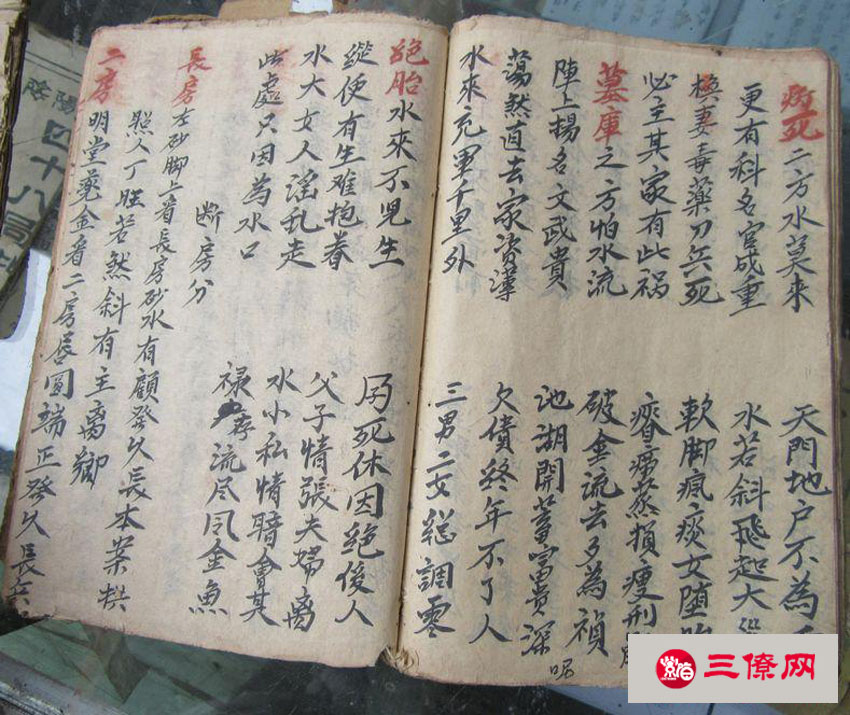 病死二方水莫来 天門地户不为
更有科名官成重 水若斜飛起大
损妻毒藥刀兵死 軟脚瘋痰女堕胎
必主其家有此祸 痨蒸損瘦刑
墓庫之方怕水流 破流去为禎
陣上揚名文武貴 池湖開蓄富貴深
呢
蕩然直去家資薄 欠債終年不了人
水来充軍千里外 三男二女総調零
絕胎水来不児生 死休因絕後人
縱使有生难抱養 父子情張夫婦离
水大女人淫乱走 水小私情暗會其
此處只因為水口 禄存流尽金魚
断房分
長房左砂脚上看長房砂水有顧癸久長本案拱
照人丁旺若然斜有主离鄉
二房明堂金看二房唇圓端正癸久長
陰陽
四十八局
三僚网